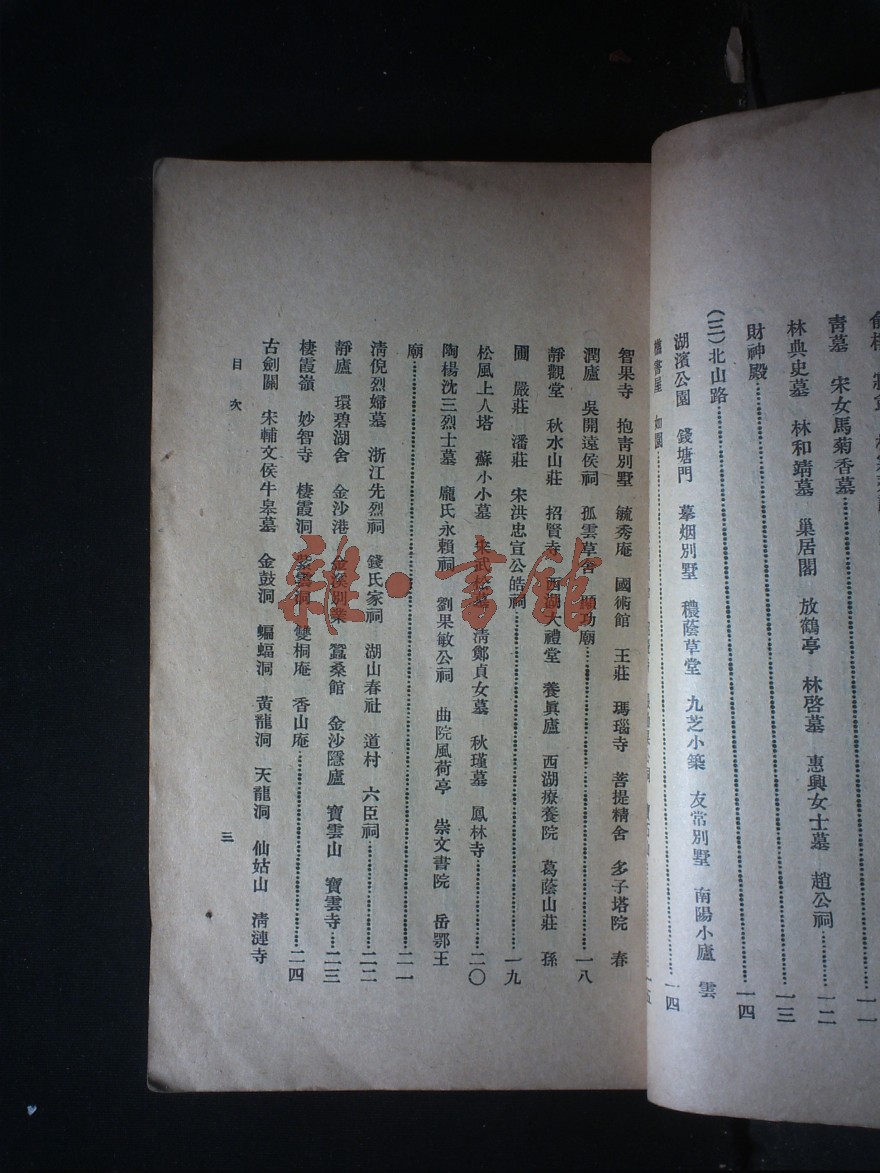 青墓　宋女馬菊香墓……一二
林典史墓　林和靖墓　巢居閣　放鶴亭　林啓墓　惠興女士墓　趙公祠
……一三
財神殿……一四
(三)北山路……一四
湖濱公園　錢塘門　摹烟別墅　穠蔭草堂　九芝小築　友常別墅　南陽小廬　雲
智果寺　抱靑別墅　毓秀庵　國術館　王莊　瑪瑙寺　菩提精舍　多子塔院　春
潤廬　吳開遠侯祠　孤雲草舍　顯功廟……一八
靜觀堂　秋水山莊　招賢寺　西湖大禮堂　養眞廬　西湖療養院　葛蔭山莊　孫
圃　嚴莊　潘莊　宋洪忠宣公皓祠……一九
松風上人塔　蘇小小墓　宋武松墓　清鄭貞女墓　秋瑾墓　鳳林寺……二〇
陶楊沈三烈士墓　龐氏永賴祠　劉果敏公祠　曲院風荷亭　崇文書院　岳鄂王
廟……二一
淸倪烈婦墓　浙江先烈祠　錢氏家祠　湖山春社　道村　六臣祠……二二
靜廬　環碧湖舍　金沙港　金溪別業　蠶桑館　金沙隱廬　寶雲山　寶雲寺……二三
棲霞嶺　妙智寺　棲霞洞　紫雲洞　雙桐庵　香山庵……二四
古劍關　宋輔文侯牛皋墓　金鼓洞　蝙蝠洞　黃龍洞　天龍洞　仙姑山　淸漣寺
目次
三
雜·書館